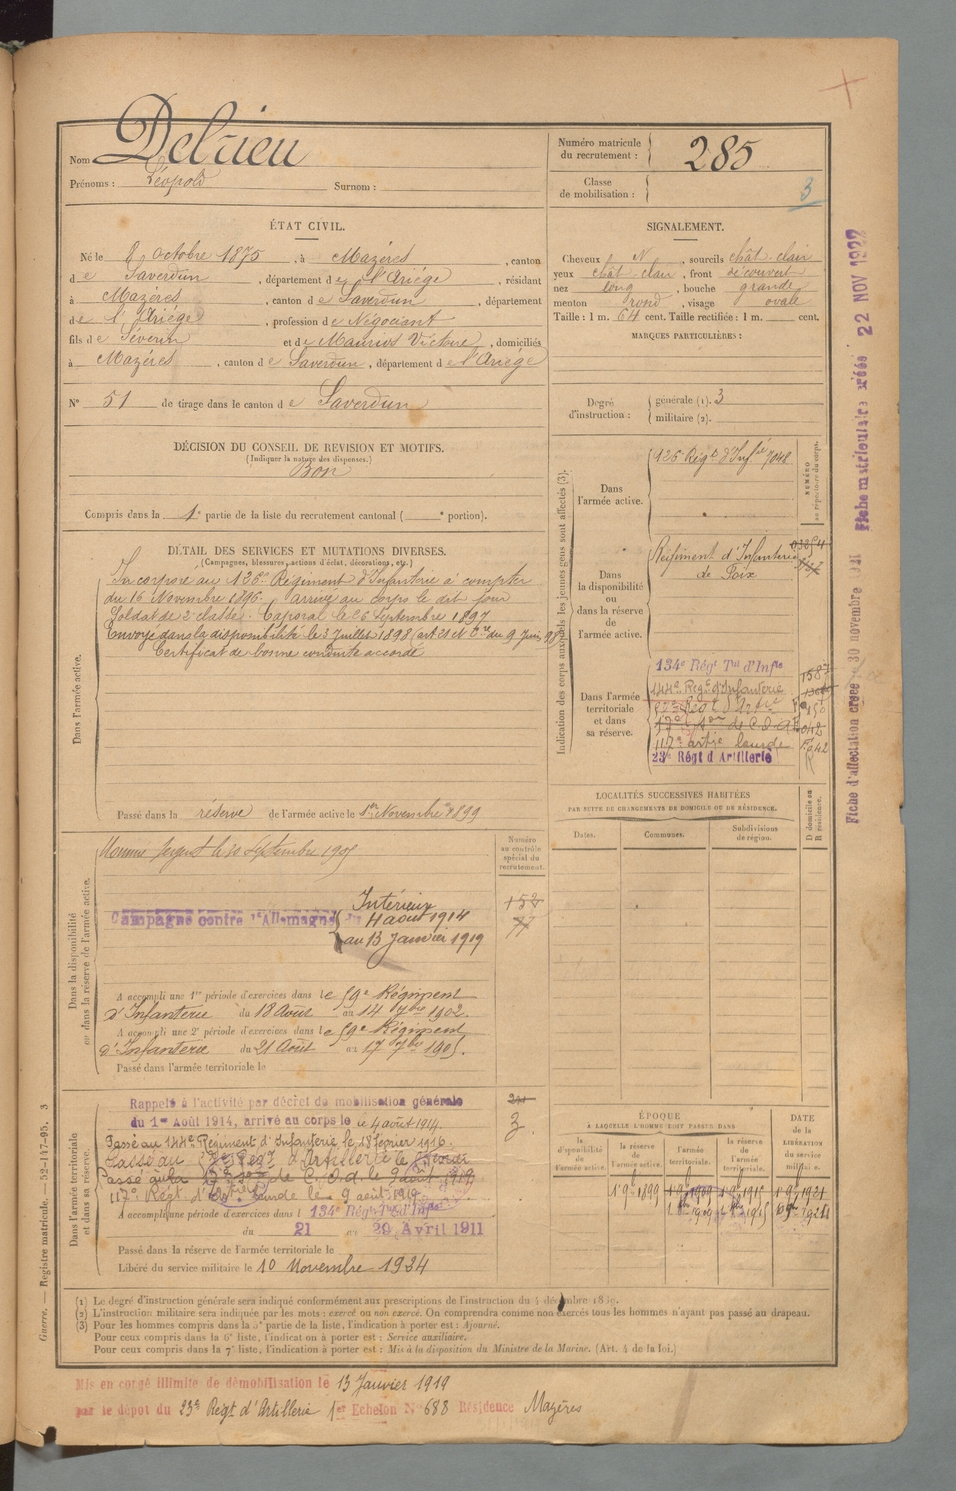 Nom Delrieu
Prénoms : Léopold Surnom :
Numéro matricule du recrutement : 285
Classe de mobilisation :
3
ÉTAT CIVIL.
Né le 8 octobre 1875, à Mazères, canton
de Saverdun, département de l'Ariège, résidant
à Mazères, canton de Saverdun, département
de l'Ariège, profession de Négociant
fils de Séverin et de Maurios Victoire, domiciliés
à Mazères, canton de Saverdun, département de l'Ariège
N° 51 de tirage dans le canton de Saverdun
SIGNALEMENT.
Cheveux N, sourcils chât-clair
yeux chât-clair, front découvert
nez long, bouche grande
menton rond, visage ovale
Taille : 1 m. 64 cent. Taille rectifiée : 1 m. cent.
MARQUES PARTICULIÈRES :
Degré d'instruction : générale (1). 3
militaire (2).
DÉCISION DU CONSEIL DE REVISION ET MOTIFS.
(Indiquer la nature des dispenses.)
Bon
Compris dans la 1e partie de la liste du recrutement cantonal ( e portion).
DÉTAIL DES SERVICES ET MUTATIONS DIVERSES.
(Campagnes, blessures, actions d'éclat, décorations, etc.)
Dans l'armée active.
Incorporé au 126e Régiment d'Infanterie à compter
du 16 Novembre 1896. arrivé au corps le dit jour
Soldat de 2e classe. Caporal le 26 Septembre 1897
Envoyé dans la disponibilité le 3 Juillet 1898
Certificat de bonne conduite accordé
Passé dans la réserve de l'armée active le 1er Novembre 1899
Indication des corps auxquels les jeunes gens sont affectés (3).
NUMÉRO au répertoire du corps.
Dans l'armée active.
126 Régt d'Infie 7048
Dans la disponibilité ou dans la réserve de l'armée active.
Régiment d'Infanterie
de Foix
Dans l'armée territoriale et dans sa réserve.
134e Régt Tal d'Infie
144e Régt d'Infanterie
117e Artie lourde
23e Régt d'Artillerie
LOCALITÉS SUCCESSIVES HABITÉES
PAR SUITE DE CHANGEMENTS DE DOMICILE OU DE RÉSIDENCE.
Dates. Communes. Subdivisions de région. D domicile ou R résidence.
Dans la disponibilité ou dans la réserve de l'armée active.
Numéro au contrôle spécial du recrutement.
Campagne contre l'Allemagne
Intérieur
du 4 août 1914
au 13 Janvier 1919
A accompli une 1re période d'exercices dans le 59e Régiment
d'Infanterie du 18 Août au 14 7bre 1902.
A accompli une 2e période d'exercices dans le 59e Régiment
d'Infanterie du 21 Août au 17 7bre 1905.
Passé dans l'armée territoriale le
Dans l'armée territoriale et dans sa réserve.
Rappelé à l'activité par décret de mobilisation générale
du 1er Août 1914, arrivé au corps le 4 août 1914.
3
Passé au 144e Régiment d'Infanterie le 18 février 1916.
117e Régt d'Artie lourde le 9 août 1919
A accompli une période d'exercices dans l 134e Régt Tal d'Infie
du 21 au 29 Avril 1911
Passé dans la réserve de l'armée territoriale le
Libéré du service militaire le 10 Novembre 1924
ÉPOQUE
À LAQUELLE L'HOMME DOIT PASSER DANS
la disponibilité de l'armée active. la réserve de l'armée active. l'armée territoriale. la réserve de l'armée territoriale.
DATE DE LA LIBÉRATION du service militaire.
(1) Le degré d'instruction générale sera indiqué conformément aux prescriptions de l'instruction du 4 décembre 1889.
(2) L'instruction militaire sera indiquée par les mots : exercé ou non exercé. On comprendra comme non exercés tous les hommes n'ayant pas passé au drapeau.
(3) Pour les hommes compris dans la 5e partie de la liste, l'indication à porter est : Ajourné.
Pour ceux compris dans la 6e liste, l'indication à porter est : Service auxiliaire.
Pour ceux compris dans la 7e liste, l'indication à porter est : Mis à la disposition du Ministre de la Marine. (Art. 4 de la loi.)
Mis en congé illimité de démobilisation le 13 Janvier 1919
par le dépôt du 23e Régt d'Artillerie 1er Echelon N° 688 Résidence Mazères
Guerre. — Registre matricule. — 52-147-95. 3
Fiche matriculaire créée 22 NOV 1922
Fiche d'affectation créée 30 novembre